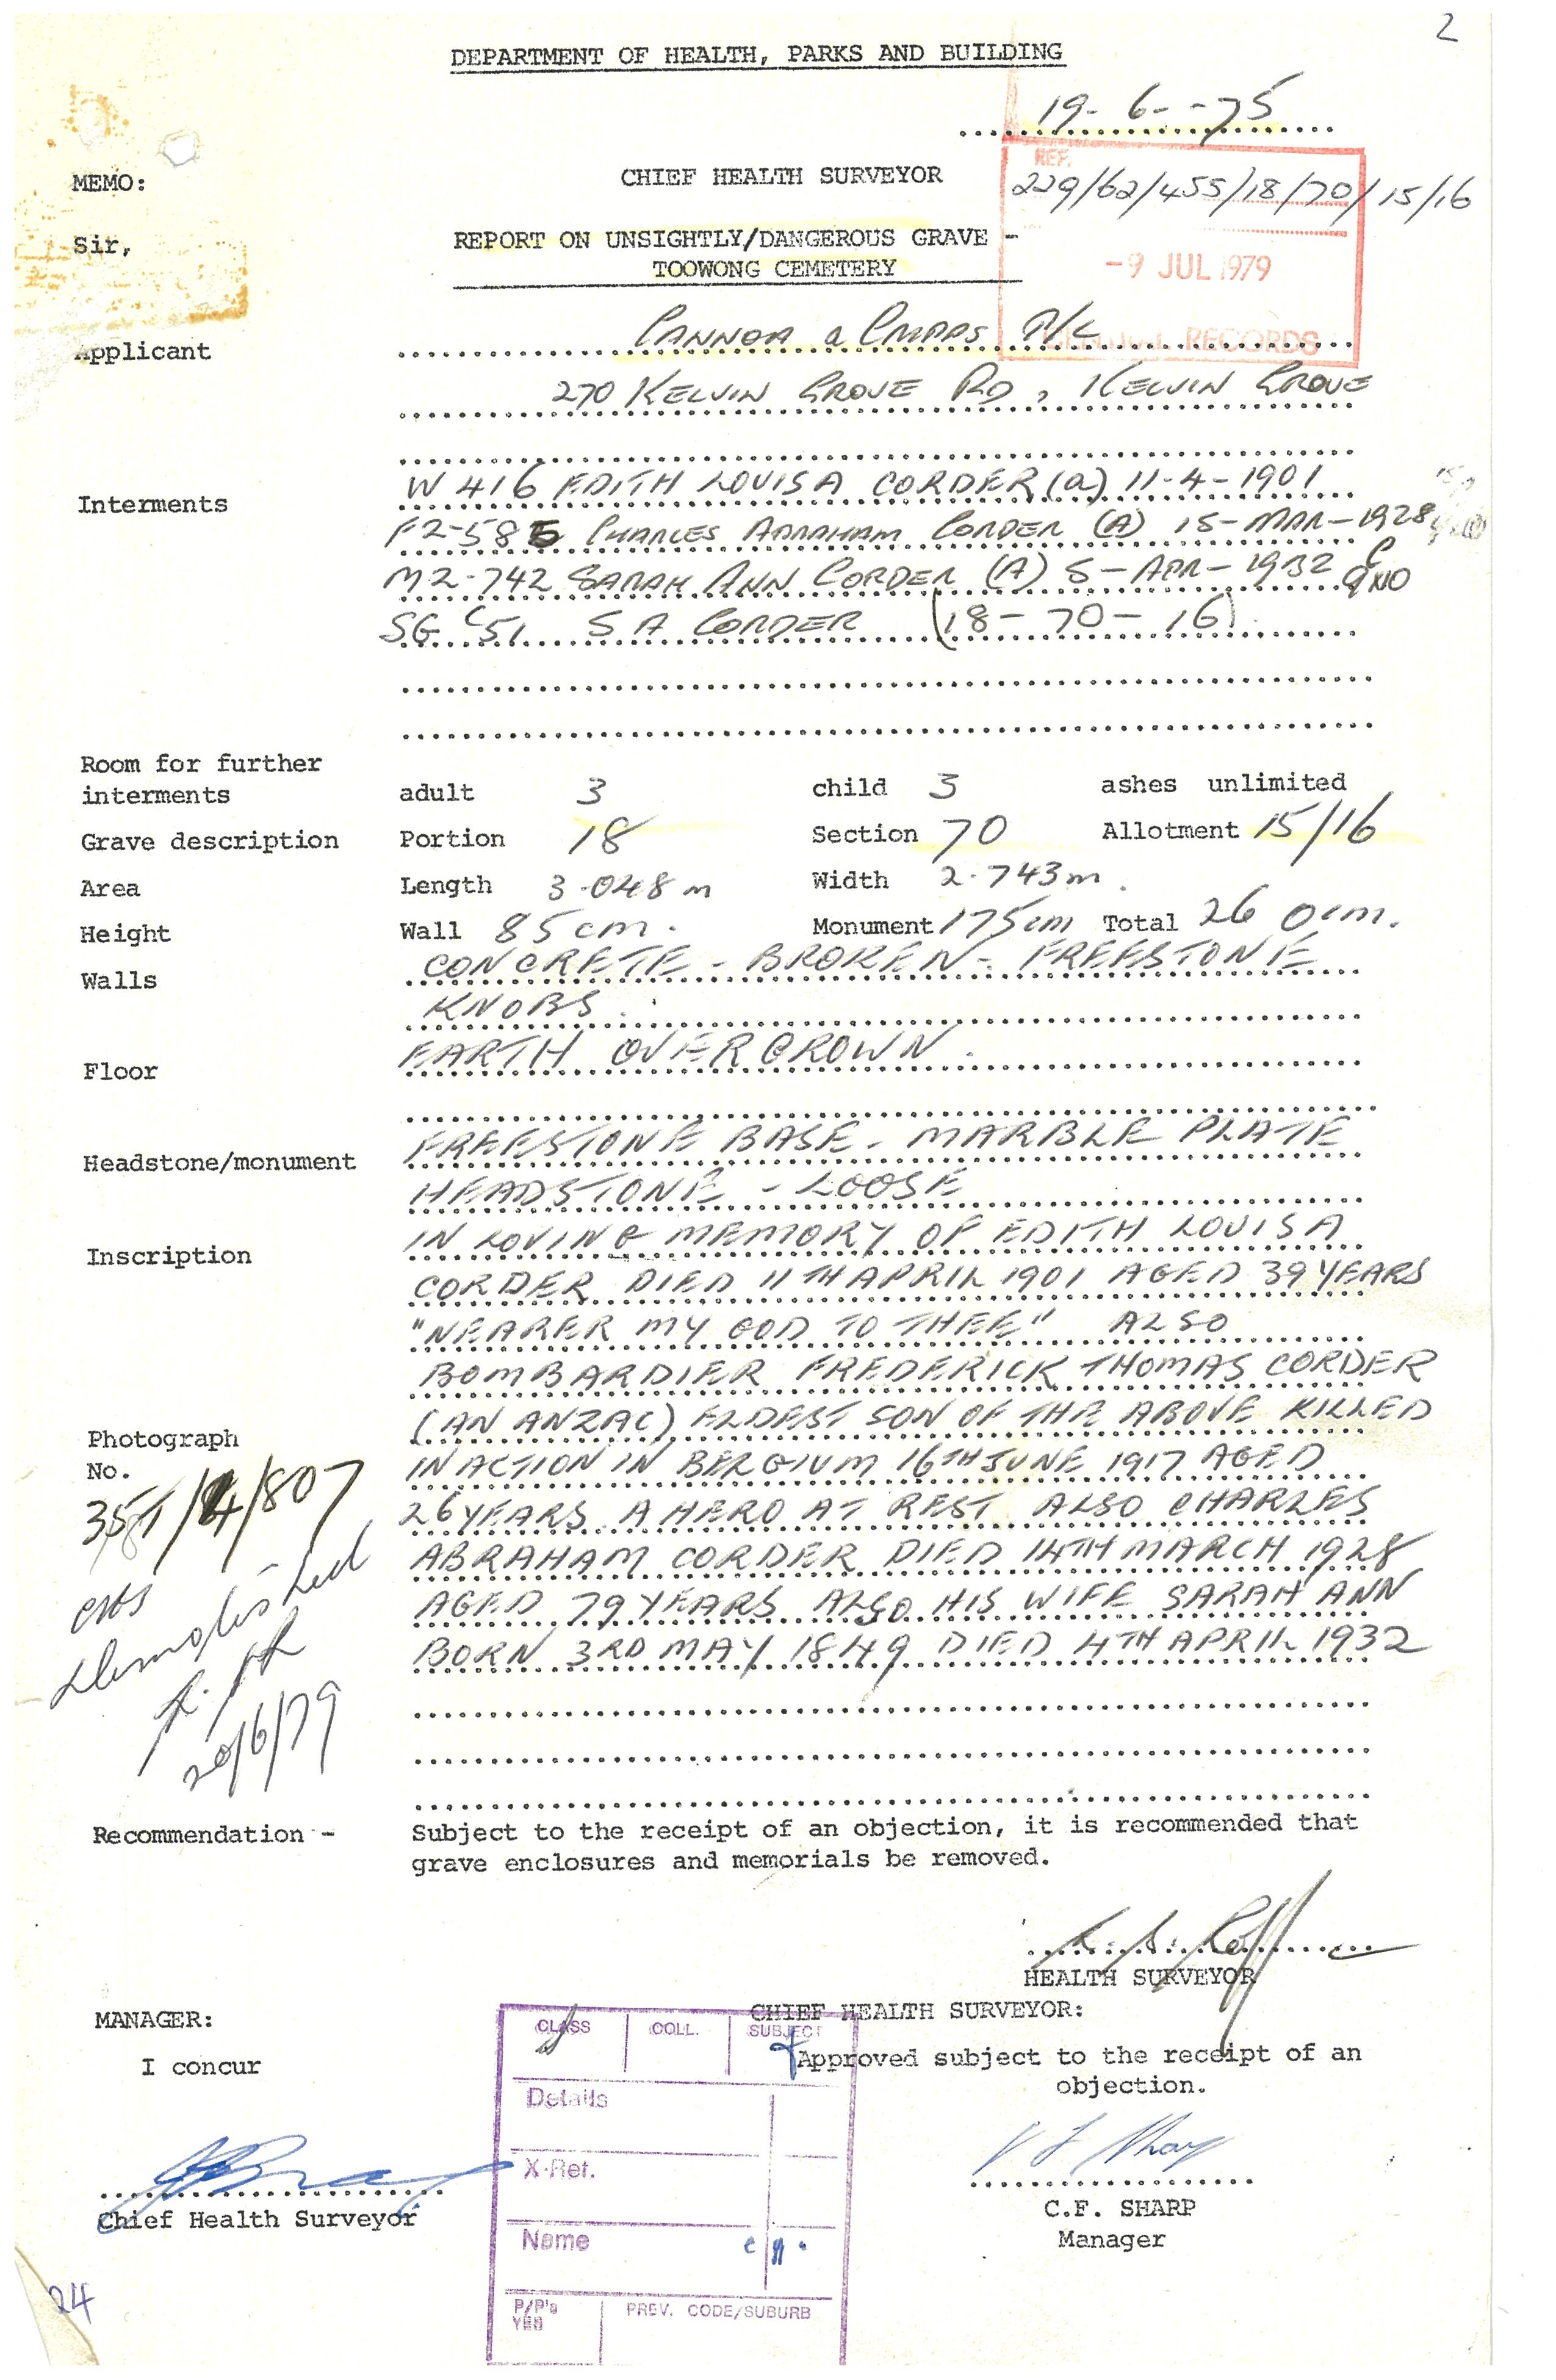 2
DEPARTMENT OF HEALTH, PARKS AND BUILDING
19-6--75
REF.
MEMO:
CHIEF HEALTH SURVEYOR
229/62/455/18/70/15/16
Sir,
REPORT ON UNSIGHTLY/DANGEROUS GRAVE -
TOOWONG CEMETERY
-9 JUL 1979
RECORDS
Applicant
CANNON & CRIPPS P/L
270 KELVIN GROVE RD, KELVIN GROVE
Interments
W 416 EDITH LOUISA CORDER (a) 11-4-1901
F2-585 CHARLES ABRAHAM CORDER (A) 15-MAR-1928
M2-742 SARAH ANN CORDER (A) 5-APR-1932
SG C51 S A CORDER (18-70-16)
Room for further
interments adult 3 child 3 ashes unlimited
Grave description Portion 18 Section 70 Allotment 15/16
Area Length 3.048 m Width 2.743m.
Height Wall 85cm. Monument 175cm Total 260cm.
Walls CONCRETE - BROKEN - FREESTONE
KNOBS.
Floor EARTH OVERGROWN.
Headstone/monument FREESTONE BASE - MARBLE PLATE
HEADSTONE - LOOSE
Inscription IN LOVING MEMORY OF EDITH LOUISA
CORDER DIED 11TH APRIL 1901 AGED 39 YEARS
"NEARER MY GOD TO THEE" ALSO
BOMBARDIER FREDERICK THOMAS CORDER
(AN ANZAC) ELDEST SON OF THE ABOVE KILLED
IN ACTION IN BERGIUM 16TH JUNE 1917 AGED
26 YEARS A HERO AT REST ALSO CHARLES
ABRAHAM CORDER DIED 14TH MARCH 1928
AGED 79 YEARS ALSO HIS WIFE SARAH ANN
BORN 3RD MAY 1849 DIED 4TH APRIL 1932
Photograph
No.
357/4/807
Demolished
20/6/79
Recommendation - Subject to the receipt of an objection, it is recommended that
grave enclosures and memorials be removed.
HEALTH SURVEYOR
MANAGER:
CHIEF HEALTH SURVEYOR:
I concur
Approved subject to the receipt of an
objection.
Chief Health Surveyor
C.F. SHARP
Manager
CLASS COLL. SUBJECT
Details
X-Ref.
Name
P/P's
YES
PREV. CODE/SUBURB
24